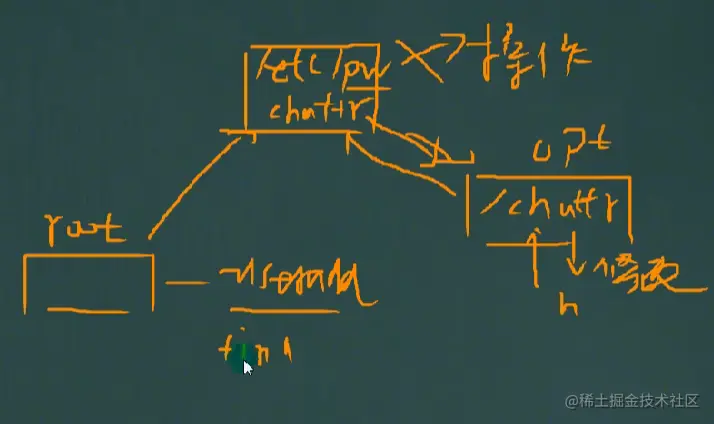 /etc/pw
chattr
opt
/chattr
修改
h
root
useradd
@稀土掘金技术社区